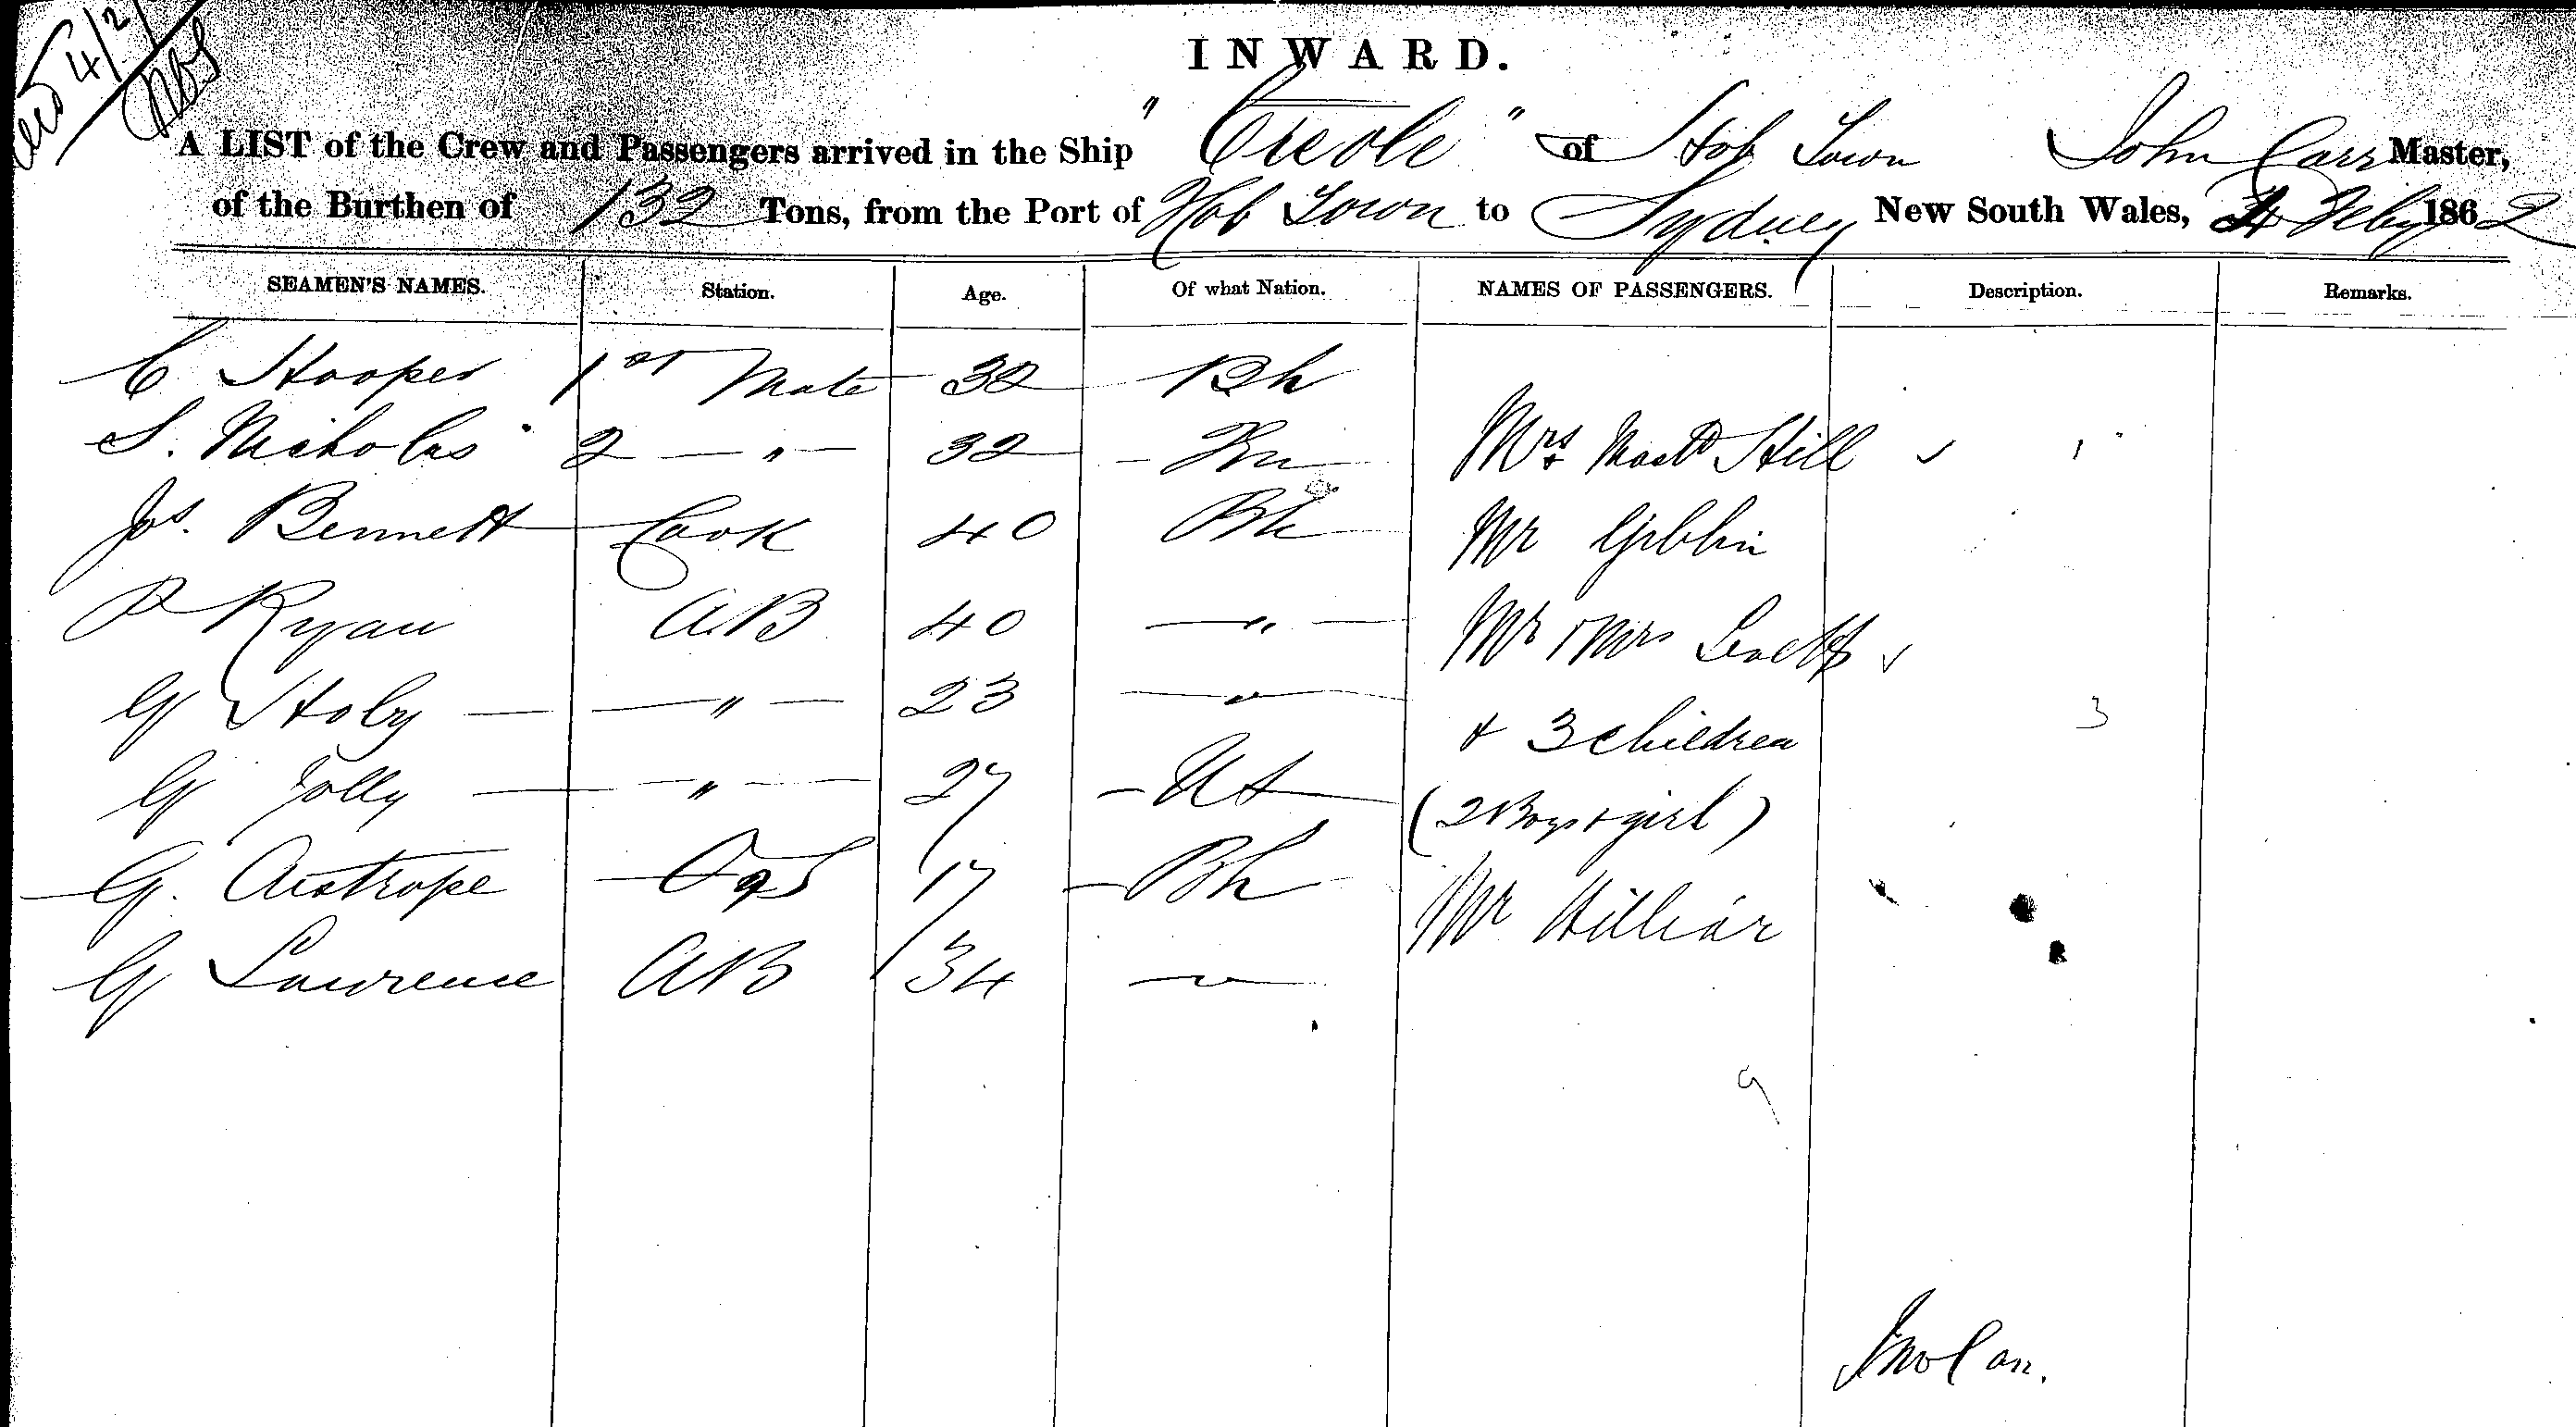 4/2/
INWARD.
A LIST of the Crew and Passengers arrived in the Ship "Creole" of Hob Town John Carr Master,
of the Burthen of 132 Tons, from the Port of Hob Town to Sydney New South Wales, 4 Feby 1862
SEAMEN'S NAMES. Station. Age. Of what Nation. NAMES OF PASSENGERS. Description. Remarks.
C Hooper 1st Mate 32 Bh
S. Nicholas 2 — " — 32 Mrs & Mast Hill
Jos. Bennett Cook 40 Bh Mr Giblin
P Ryan AB 40 — " — Mr & Mrs
G Hoby — " — 23 — " — & 3 children 3
G Jolly — " — 27 US (2 Boys & girl)
G. Austrope 17 Bh Mr Hilliar
G Lawrence AB 34 — " —
9
Jno Carr.